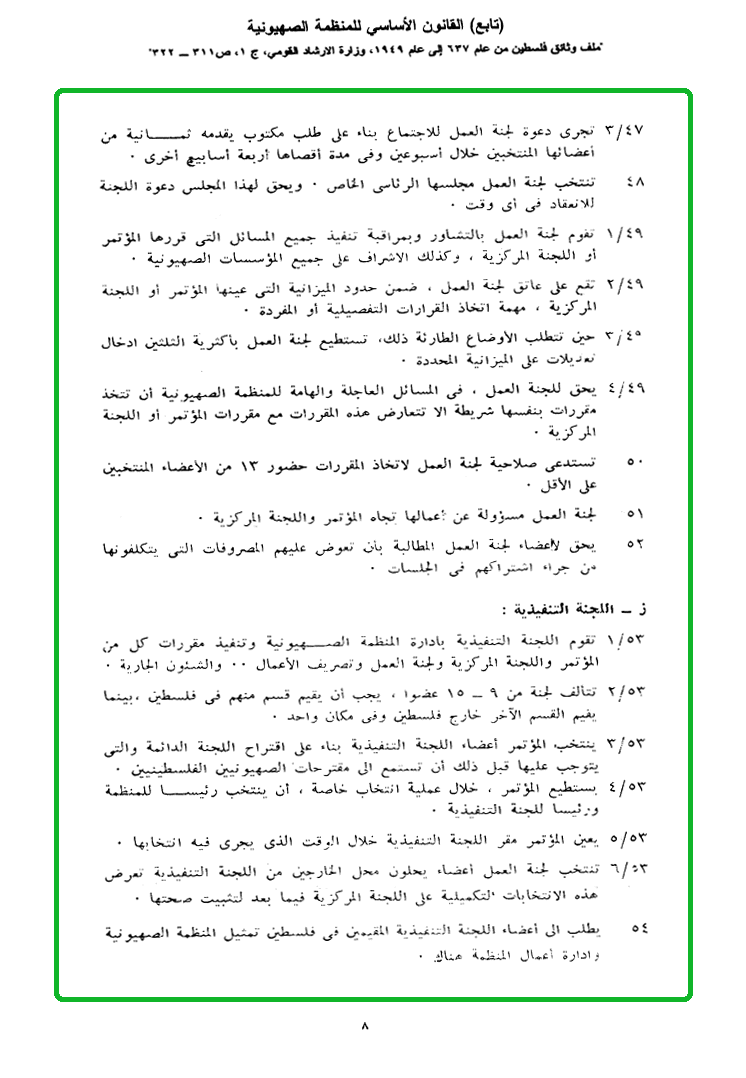 (تابع) القانون الأساسي للمنظمة الصهيونية
"ملف وثائق فلسطين من عام ٦٣٧ إلى عام ١٩٤٩، وزارة الارشاد القومي، ج ١، ص٣١١ ــ ٣٢٢"
٣/٤٧ تجرى دعوة لجنة العمل للاجتماع بناء على طلب مكتوب يقدمه ثمـــانية من
أعضائها المنتخبين خلال أسبوعين وفى مدة أقصاها أربعة أسابيع أخرى ٠
٤٨ تنتخب لجنة العمل مجلسها الرئاسى الخاص ٠ ويحق لهذا المجلس دعوة اللجنة
للانعقاد فى أى وقت ٠
١/٤٩ تقوم لجنة العمل بالتشاور وبمراقبة تنفيذ جميع المسائل التى قررها المؤتمر
أو اللجنة المركزية ، وكذلك الاشراف على جميع المؤسسات الصهيونية ٠
٢/٤٩ تقع على عاتق لجنة العمل ، ضمن حدود الميزانية التى عينها المؤتمر أو اللجنة
المركزية ، مهمة اتخاذ القرارات التفصيلية أو المفردة ٠
٣/٤٩ حين تتطلب الأوضاع الطارئة ذلك، تستطيع لجنة العمل بأكثرية الثلثين ادخال
تعديلات على الميزانية المحددة ٠
٤/٤٩ يحق للجنة العمل ، فى المسائل العاجلة والهامة للمنظمة الصهيونية أن تتخذ
مقررات بنفسها شريطة الا تتعارض هذه المقررات مع مقررات المؤتمر أو اللجنة
المركزية ٠
٥٠ تستدعى صلاحية لجنة العمل لاتخاذ المقررات حضور ١٣ من الأعضاء المنتخبين
على الأقل ٠
٥١ لجنة العمل مسؤولة عن أعمالها تجاه المؤتمر واللجنة المركزية ٠
٥٢ يحق لأعضاء لجنة العمل المطالبة بأن تعوض عليهم المصروفات التى يتكلفونها
من جراء اشتراكهم فى الجلسات ٠
ز ــ اللجنة التنفيذية :
١/٥٣ تقوم اللجنة التنفيذية بادارة المنظمة الصـــهيونية وتنفيذ مقررات كل من
المؤتمر واللجنة المركزية ولجنة العمل وتصريف الأعمال ٠٠ والشئون الجارية ٠
٢/٥٣ تتألف لجنة من ٩ ــ ١٥ عضوا ، يجب أن يقيم قسم منهم فى فلسطين ،بينما
يقيم القسم الآخر خارج فلسطين وفى مكان واحد ٠
٣/٥٣ ينتخب المؤتمر أعضاء اللجنة التنفيذية بناء على اقتراح اللجنة الدائمة والتى
يتوجب عليها قبل ذلك أن تستمع الى مقترحات الصهيونيين الفلسطينيين ٠
٤/٥٣ يستطيع المؤتمر ، خلال عملية انتخاب خاصة ، أن ينتخب رئيســـا للمنظمة
ورئيسا للجنة التنفيذية ٠
٥/٥٣ يعين المؤتمر مقر اللجنة التنفيذية خلال الوقت الذى يجرى فيه انتخابها ٠
٦/٥٣ تنتخب لجنة العمل أعضاء يحلون محل الخارجين من اللجنة التنفيذية تعرض
هذه الانتخابات التكميلية على اللجنة المركزية فيما بعد لتثبيت صحتها ٠
٥٤ يطلب الى أعضاء اللجنة التنفيذية المقيمين فى فلسطين تمثيل المنظمة الصهيونية
وادارة أعمال المنظمة هناك ٠
٨